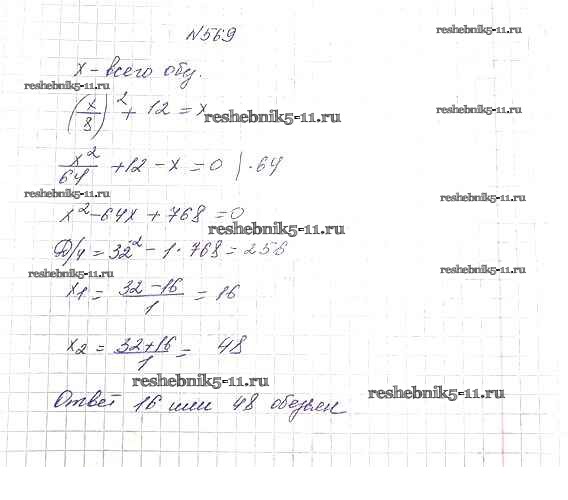 N569
reshebnik5-11.ru
x - всего обез.
reshebnik5-11.ru
(x/8)² + 12 = x
reshebnik5-11.ru
reshebnik5-11.ru
x²/64 + 12 - x = 0 | · 64
reshebnik5-11.ru
reshebnik5-11.ru
x² - 64x + 768 = 0
reshebnik5-11.ru
Д/4 = 32² - 1 · 768 = 256
reshebnik5-11.ru
reshebnik5-11.ru
x1 = (32 - 16)/1 = 16
x2 = (32 + 16)/1 = 48
reshebnik5-11.ru
reshebnik5-11.ru
Ответ 16 или 48 обезьян